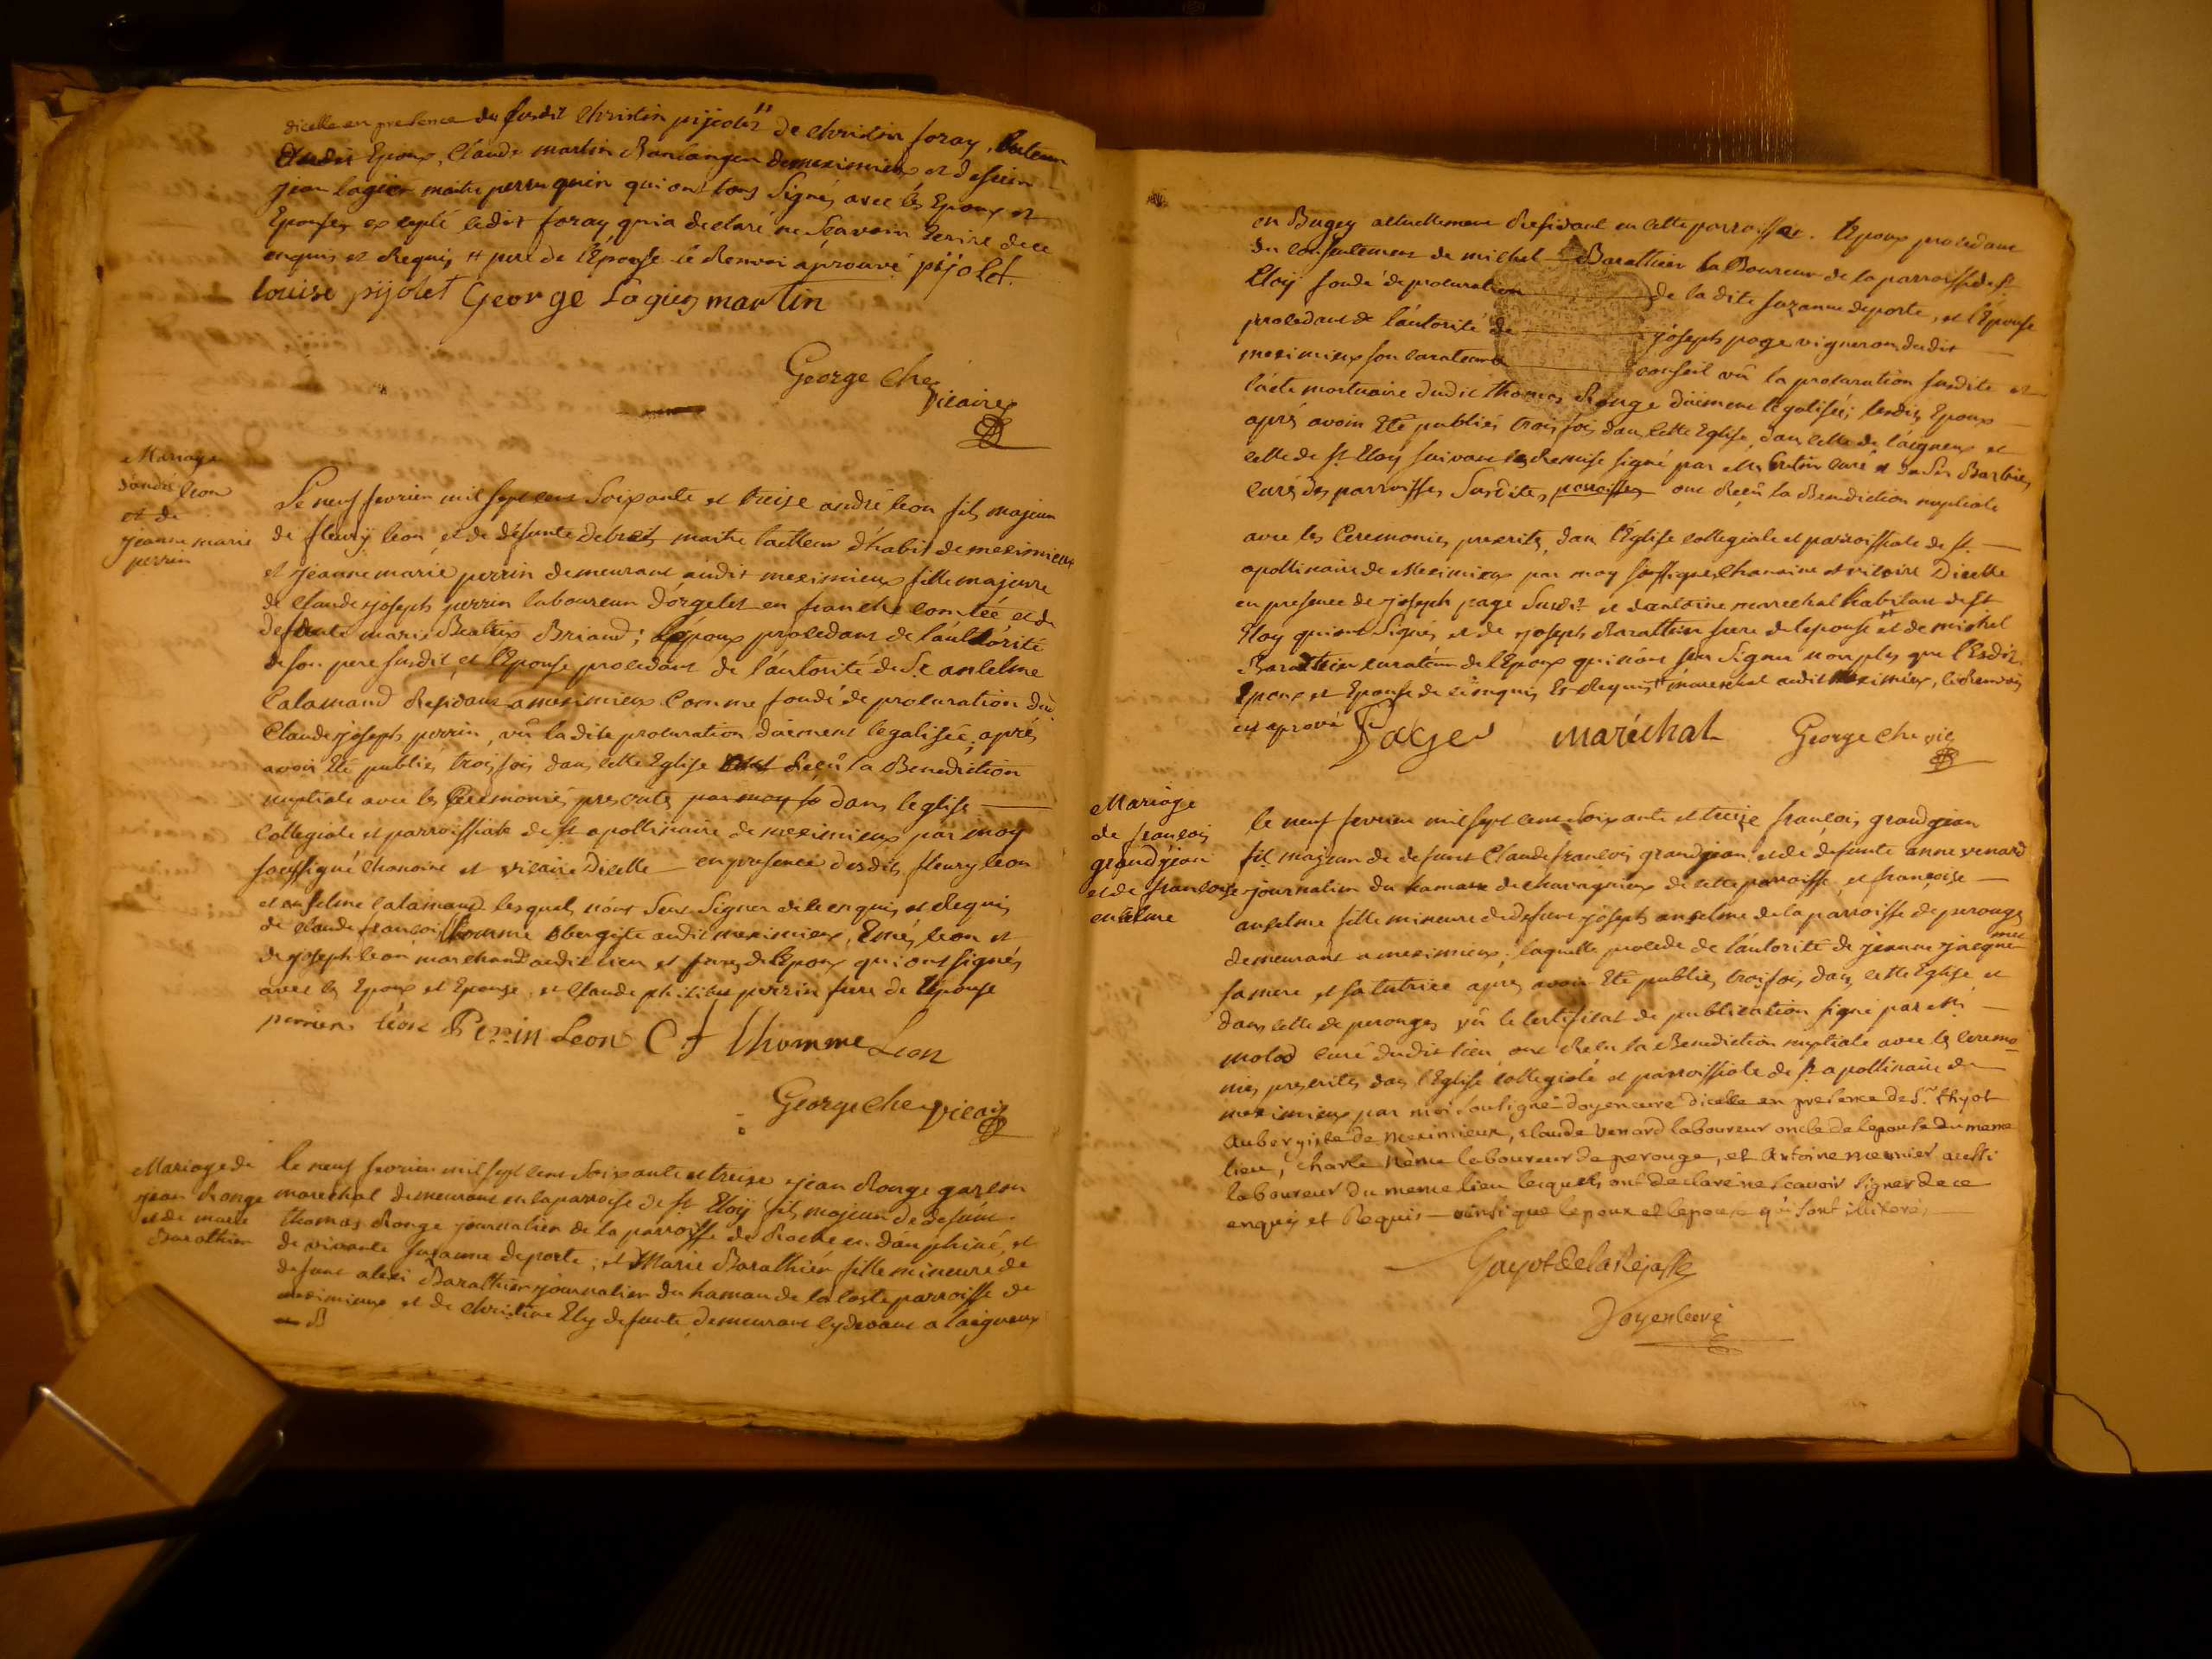 dicelle en presence du susdit Christin pijolet " de Christin foray tuteur
dudit Epoux, Claude martin Boulanger de meximieux et de sieur
jean lagier maitre perruquier qui ont tous Signés avec les Epoux et
Epouses excepté ledit foray qui a declaré ne Scavoir Ecrire de ce
enquis et Requis # pere de l'Epouse le Renvoi aprouvé pijolet.
louise pijolet George Logier martin
George Che vicaire
Mariage
d'andré leon
et de
jeanne marie
perrin
Le neuf fevrier mil sept cent Soixante et treize andré leon fils majeur
de fleury leon et de défunte maitre tailleur d'habit de meximieux
et jeanne marie perrin demeurant audit meximieux fille majeure
de Claude joseph perrin laboureur d'orgelet en franche comtée et de
defunte marie Beatrix Briand; l'époux procedant de l'autorité
de son pere susdit, et l'Epouse procedant de l'autorité de Sr. anselme
Calamand Residant a meximieux Comme fondé de procuration dud.
Claude joseph perrin, vû ladite procuration düement legalisée, aprés
avoir Eté publiés trois fois dans cette Eglise ont Reçû la Benediction
nuptiale avec les Ceremonies prescrites par moy so dans leglise
Collegiale et parroissiale de St apollinaire de meximieux par moy
soussigné Chanoine et vicaire Dicelle en presence desdits fleury leon
et anselme Calamand lesquels n'ont Sçus Signer de ce enquis et Requis
de Claude françois lhomme aubergiste audit meximieux, Emé leon et
de joseph leon marchand audit lieu et freres de l'Epoux qui ont signés
avec les Epoux et Epouse, et Claude philibert perrin frere de l'Epouse
perrin léon Perrin Leon C f lhomme Leon
George Che vicaire
Mariage de
jean Ronge
et de marie
Barathier
le neuf fevrier mil sept cent Soixante et treize jean Ronge garçon
marechal demeurant en la parroisse de St Eloy fils majeur de defunt
thomas Ronge journalier de la parroisse de Roche en dauphiné, et
de vivante Suzanne deporte; et Marie Barathier fille mineure de
defunt alexi Barathier journalier du hamau de la Coste parroisse de
meximieux et de Christine Ely defunte, demeurant cydevant a laigneux
en Bugey actuellement Residant en cette parroisse. l'Epoux procedant
du consentement de michel Barathier laBoureur de la parroisse de St
Eloy fondé de procuration de la dite Suzanne deporte, et l'Epouse
procedant de l'autorité de joseph page vigneron dudit
meximieux son curateur conseil vû la procuration susdite et
l'acte mortuaire dudit thomas Ronge düement legalisés; lesdits Epoux
aprés avoir Eté publiés trois fois dans cette Eglise, dans celle de laigneux et
celle de St Eloy suivant les Remise signé par Mrs curé et Barbier
curés des parroisses Susdites, parroisses ont Reçû la Benediction nuptiale
avec les Ceremonies prescrites, dans l'Église collegiale et parroissiale de St.
apollinaire de Meximieux par moy Soussigné Chanoine et vicaire Dicelle
en presence de joseph page Susdit et d'antoine marechal habitant de St
Eloy qui ont Signés et de joseph Barathier frere de lepouse et de michel
Barathier curateur de l'Epoux qui n'ont sçu Signer non plus que lesdits
Epoux et Epouse de ce enquis Et Requis # marechal audit Meximieux, le Renvoi
est aprouvé Page maréchal George che vic
Mariage
de françois
grandjean
et de françoise
anselme
le neuf fevrier mil sept cent Soixante et treize françois grandjean
fils majeur de defunt Claude françois grandjean, et de défunte anne venard
journalier du hamau de chavagnieux de cette parroisse, et françoise
anselme fille mineure de defunt joseph anselme de la parroisse de perouges
demeurant a meximieux, laquelle procede de l'autorité de jeanne jacquemet
sa mere et sa tutrice aprés avoir Eté publiés trois fois dans cette Eglise et
dans celle de perouges vû le certificat de publication signé par Mr
molod curé dudit lieu ont Reçu la Benediction nuptiale avec les ceremo-
nies prescrites dans l'Eglise collegiale et parroissiale de St apollinaire de
meximieux par moi soussigné doyen curé dicelle en presence de Sr. thyot
aubergiste de meximieux, claude venard laboureur oncle de lepoux du meme
lieu, charle néme laboureur de perouge, et Antoine meunier aussi
laboureur du meme lieu lesquels ont declaré ne scavoir signer de ce
enquis et Requis ainsi que lepoux et lepouse qui sont illiterés
Guyot de la Rejasse
Doyen curé